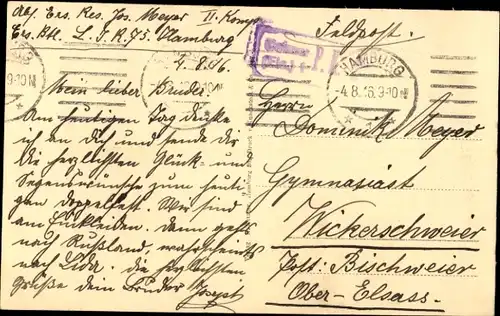 Abs. Ers. Res. Jos. Meyer II. Komp.
Ers. Btl. L. I. R. 75. Hamburg
4. 8. 16.
Mein lieber Bruder
Am heutigen Tag denke
ich an dich und sende dir
die herzlichsten Glück- und
Segenswünsche zum heuti-
gen Doppelfest. Wir sind
am Einkleiden. Dann gehts
nach Rußland, wahrscheinl.
nach Lida. die herzlichsten
Grüße dein Bruder Joseph
Feldpost.
HAMBURG
-4.8.16.9-10N
Herrn
Dominik Meyer
Gymnasiast
Wickerschweier
Post: Bischweier
Ober-Elsass.